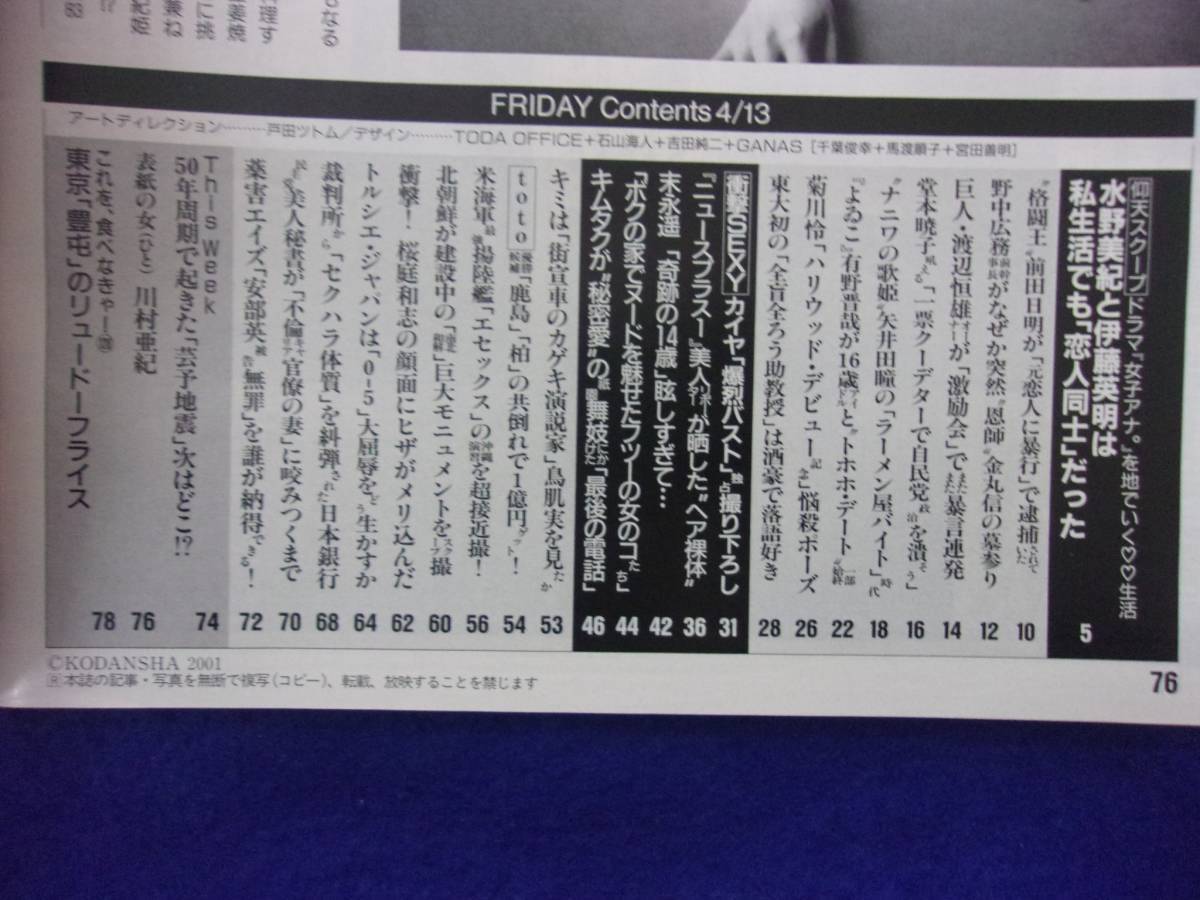 もなる
理す
生姜焼
に挑
兼ね
紀姫
!?
63
FRIDAY Contents 4/13
アートディレクション………戸田ツトム／デザイン………TODA OFFICE+石山海人+吉田純二+GANAS［千葉俊幸+馬渡順子+宮田善明］
仰天スクープ ドラマ『女子アナ。』を地でいく♡♡生活
水野美紀と伊藤英明は
私生活でも「恋人同士」だった 5
“格闘王”前田日明が「元恋人に暴行」で逮捕されていた 10
野中広務前幹事長がなぜか突然“恩師”金丸信の墓参り 12
巨人・渡辺恒雄オーナーが「激励会」でまたまた暴言連発 14
堂本暁子吼える「一票クーデターで自民党政治を潰そう」 16
“ナニワの歌姫”矢井田瞳の「ラーメン屋バイト」時代 18
『よゐこ』有野晋哉が16歳アイドルと“トホホ・デート”一部始終 22
菊川怜「ハリウッド・デビュー」記念 悩殺ポーズ 26
東大初の「全盲全ろう助教授」は酒豪で落語好き 28
衝撃SEXY カイヤ「爆烈バスト」独占撮り下ろし 31
『ニュースプラス1』美人リポーターが晒した“ヘア裸体” 36
末永遥 「奇跡の14歳」眩しすぎて… 42
「ボクの家でヌードを魅せたフツーの女のコたち」 44
キムタクが“秘密愛”の祇園舞妓にかけた「最後の電話」 46
キミは「街宣車のカゲキ演説家」鳥肌実を見たか 53
toto 優勝候補「鹿島」「柏」の共倒れで1億円ゲット！ 54
米海軍最強揚陸艦「エセックス」の沖縄演習を超接近撮！ 56
北朝鮮が建設中の「南北和解」巨大モニュメントをスクープ撮 60
衝撃！ 桜庭和志の顔面にヒザがメリ込んだ 62
トルシエ・ジャパンは「0-5」大屈辱をどう生かすか 64
裁判所から「セクハラ体質」を糾弾された日本銀行 68
美人秘書が「不倫キャリア官僚の妻」に咬みつくまで 70
薬害エイズ「安部英被告無罪」を誰が納得できる！ 72
This Week
50年周期で起きた「芸予地震」次はどこ!? 74
表紙の女（ひと） 川村亜紀 76
これを、食べなきゃー
東京「豊屯」のリュードーフライス 78
©KODANSHA 2001
Ⓡ本誌の記事・写真を無断で複写(コピー)、転載、放映することを禁じます
76